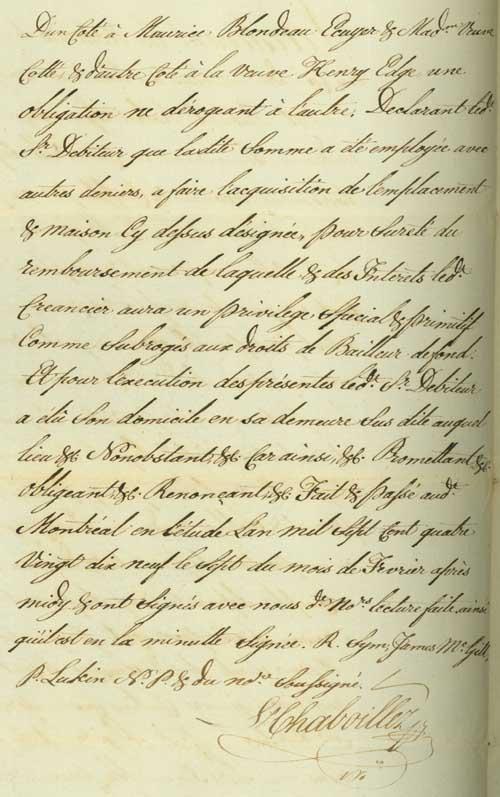 D'un Coté à Maurice Blondeau Ecuyer & Mad.me Veuve
Cotté, & d'autre Coté à la Veuve Henry Edge une
obligation ne dérogeant à l'autre; Declarant led.t
S.r Debiteur que ladite Somme a été employée avec
autres deniers, a faire l'acquisition de l'emplacement
& maison Cy dessus désignée, pour Sureté du
remboursement de laquelle & des Interets led.t
Creancier aura un privilege Spécial & primitif
Comme Subrogés aux droits de Bailleur de fond.
Et pour l'execution des présentes led.t S.r Debiteur
a élû Son domicile en sa demeure Sus dite auquel
lieu &c. Nonobstant, &c. Car ainsi, &c. Promettant &c.
obligeant, &c. Renonçant, &c. Fait & passé aud.t
Montréal en l'étude L'an mil Sept Cent quatre
Vingt dix neuf le Sept du mois de Fevrier après
midy & ont Signés avec nous d.ts No.rs lecture faite ainsi
qu'il est en la minutte Signée. R. Sym, James Mc Gill,
P. Lukin N.P. & du no.re Soussigné.
Chaboillez